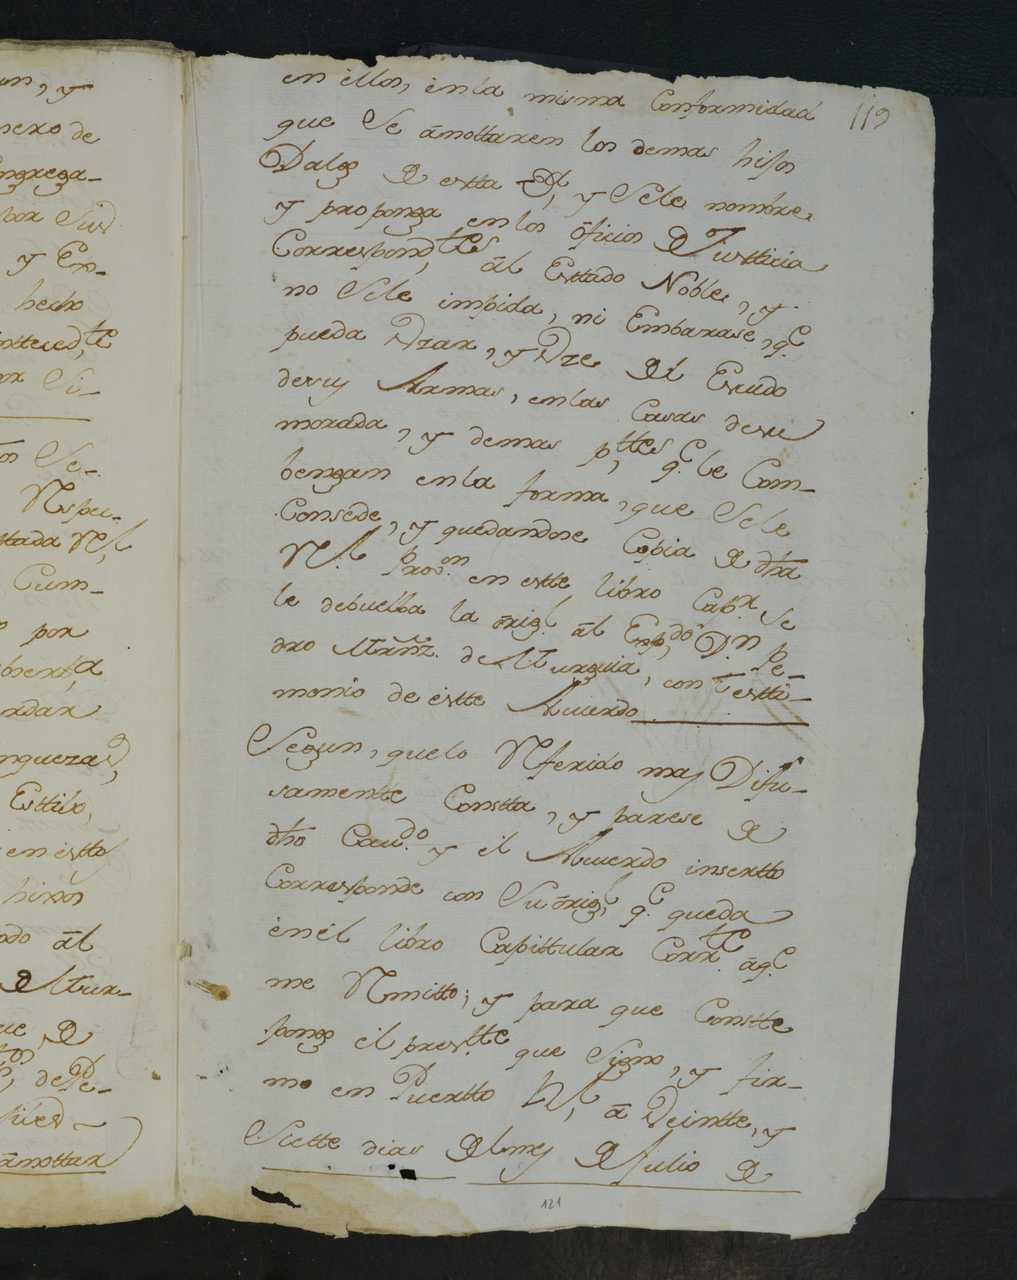 119
en ellos, en la misma Conformidad
que Se ánottaren los demas hijos
Dalgo de estta Vª, y Sele nombre,
y proponga en los óficios de Justicia
Correspondtes ál Esttado Noble, y
no Sele impida, ni Embarase, qe
pueda Vzar, y Vze del Escudo
desus Armas, enlas Casas desu
morada, y demas pttes qe le Com-
bengan enla forma, que Sele
Consede, y quedandose Copia de dha
Rl Proon en estte libro Capr. Se
le debuelba la órigl. ál Espdo Dn Pe-
dro Mrñz. de Murguia, con testti-
monio de éstte Acuerdo
Segun, quelo Referido mas Difu-
samentte Constta, y parese de
dho Caudo. y el Acuerdo insertto
Corresponde con Su órigl, qe queda
en él libro Capittular Corrte ágl
me Remitto; y para que Constte
pongo él presstte que Signo, y fir-
mo en Puertto Rl, á Veintte, y
Siette dias del mes de Julio de
121
un, y
nero de
ngrega-
por Sus
y En-
hecho
ntteced,te
or Su-
os Se-
Respec-
ttada Rl
Cum-
por
bierta
ndar
nguezas
Esttilo,
en estto
hixos
ndo ál
de Mur-
ue, de
de Pe-
ánottar